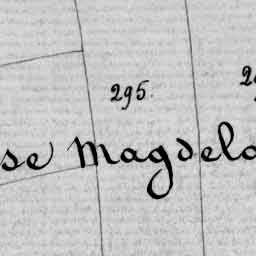 295.
se Magdela